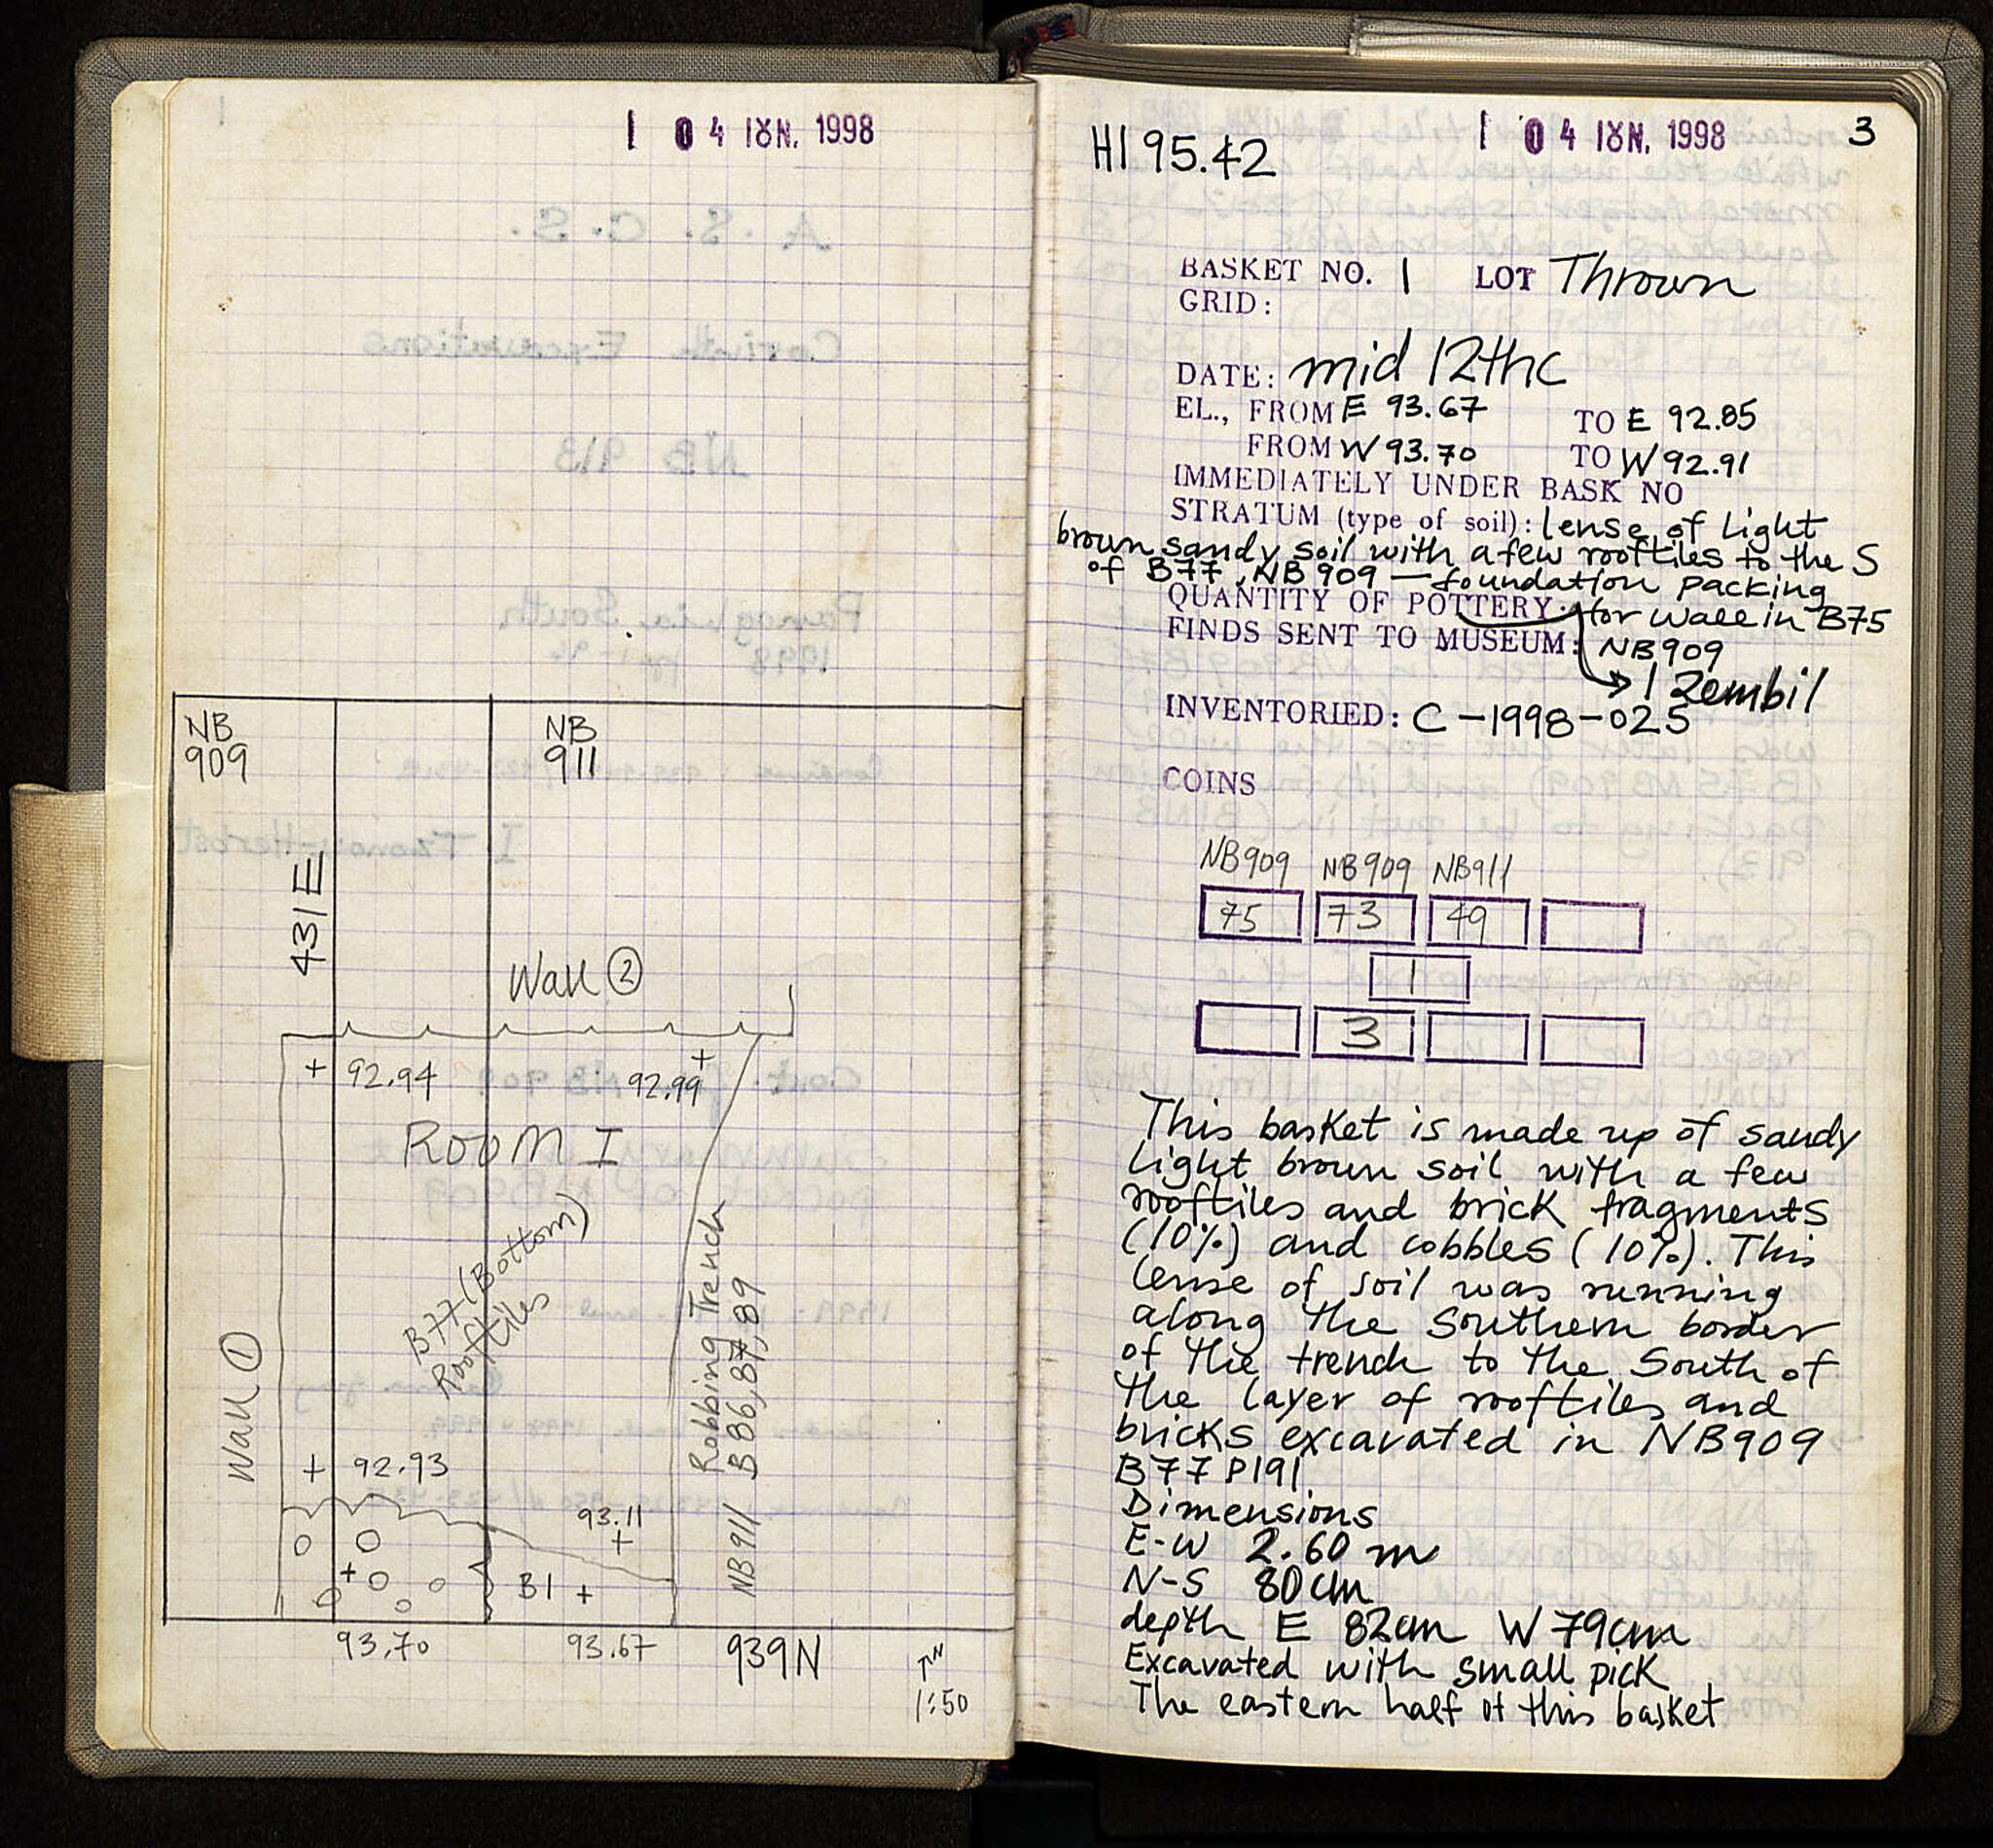 1 04 ΙȢΝ. 1998
NB
909
NB
911
431 E
Wall ②
+ 92.94
92.99 +
ROOM I
B77 (Bottom)
Rooftiles
Robbing Trench
NB911 B86,87,89
Wall ①
+ 92.93
93.11
+
+
B1 +
93.70
93.67
939N
1:50
1 04 ΙȢΝ. 1998
3
HI 95.42
BASKET NO. 1 LOT Thrown
GRID:
DATE: mid 12thc
EL., FROM E 93.67 TO E 92.85
FROM W 93.70 TO W 92.91
IMMEDIATELY UNDER BASK NO
STRATUM (type of soil): lense of light
brown sandy soil with a few rooftiles to the S
of B77, NB 909 — foundation packing
for wall in B75
NB909
QUANTITY OF POTTERY: → 1 Zembil
FINDS SENT TO MUSEUM:
INVENTORIED: C-1998-025
COINS
NB909 NB909 NB911
75 73 49
1
3
This basket is made up of sandy
light brown soil with a few
rooftiles and brick fragments
(10%) and cobbles (10%). This
lense of soil was running
along the Southern border
of the trench to the South of
the layer of rooftiles and
bricks excavated in NB909
B77 P191
Dimensions
E-W 2.60 m
N-S 80cm
depth E 82cm W 79cm
Excavated with small pick
The eastern half of this basket